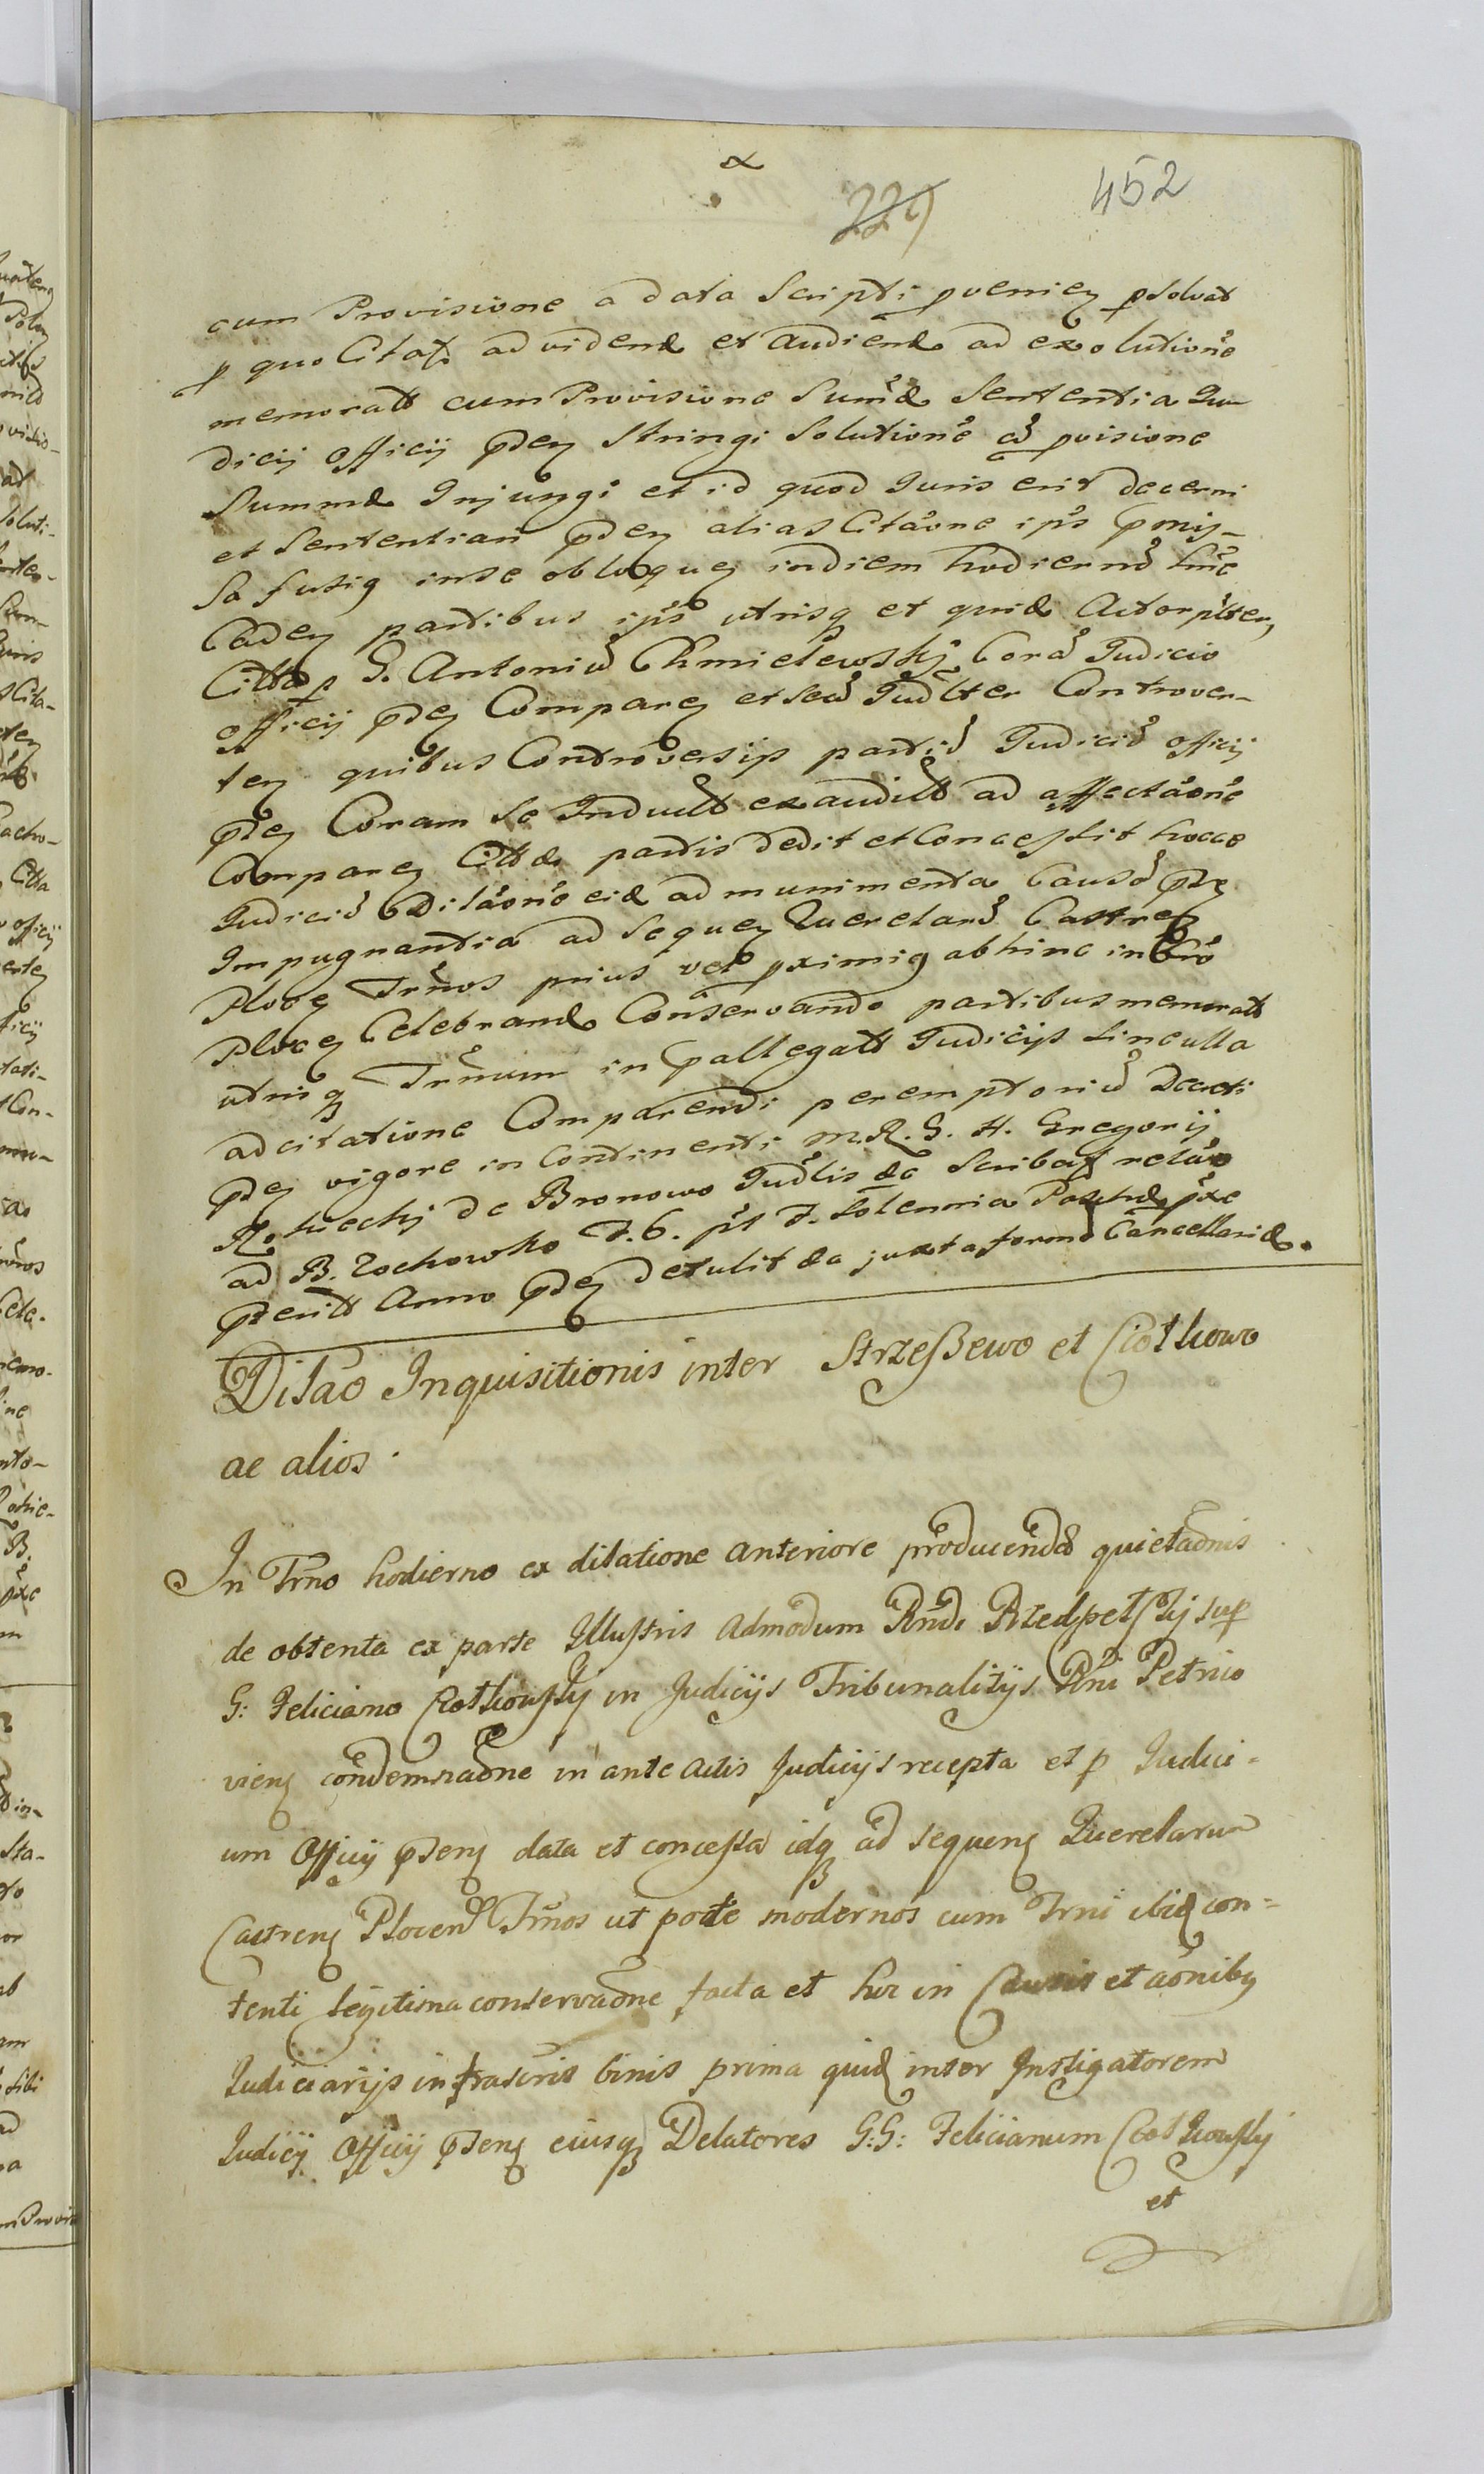 α
229
452
cum Provisione a data Scripti pveniē psolvat
p quo Citatō ad videndæ et audiendæ ad exolutionē
memoratt cum Provisione Sumæ Sententia Ju
dicij officij pden Stringi Solutionē cū pvisione
Summæ Injungi et id quod Juris erit decerni
et Sententiari pden alias Citāone ips pmis-
Sa fusiq inse obloquen indiem hodiernū
Eaden partibus ips utrisq et quidē Actor
Citta p G. Antoniū Chmielewskj Corā Judicio
officij pden Comparen et seū Judlter Controver-
ten quibus Controversijs partiū Judiciū officij
pden Coram se Induclt exauditt ad affectāonē
Comparen Cittæ partis dedit et Concessit hocce
Judiciū Dilāonē eidē ad munimenta Causū pden
Impugnantia ad sequen Querelarū Castren
Plocen Trnos prius vel pximiq abhinc in Crō
Plocen Celebrandæ Conservando partibus memoratt
utrisq Trnum in pallegatt Judicijs sine ulla
adcitatione Comparendi peremptoriū Decreti
pden vigore in Continenti M. R. G. H. Gregorij
Rościechj de Bronowo Judlis &c Scribaq relāo
ad B. Zochowsko F. 6. pst F. Solennia Paschæ pxe
pteritt Anno pden detulit &c juxta formā Cancellariæ.
Dilāo Inquisitionis inter Strzeszewo et Ciothowo
ac alios.
In Trno hodierno ex dilatione anteriore producendæ quietāonis
de obtenta ex parte Illustris Admodum Rndi Rzedpelskij sup
G: Feliciano Ciotkowskij in Judicijs Tribunalitijs Rni Petrico
vien condemnāone in ante actis Judicijs recepta et p Judici=
um Officij psen data et concessa idq ad sequen Querelarum
Castren Plocen Trnos ut pote modernos cum Trni ibiq con=
tenti legitima conservāone facta et hic in Causis et āonibq
Judiciarijs infrascris binis prima quiq inter Instigatorem
Judicij Officij psen eiusq Delatores G:G: Felicianum Ciotkowskij
et